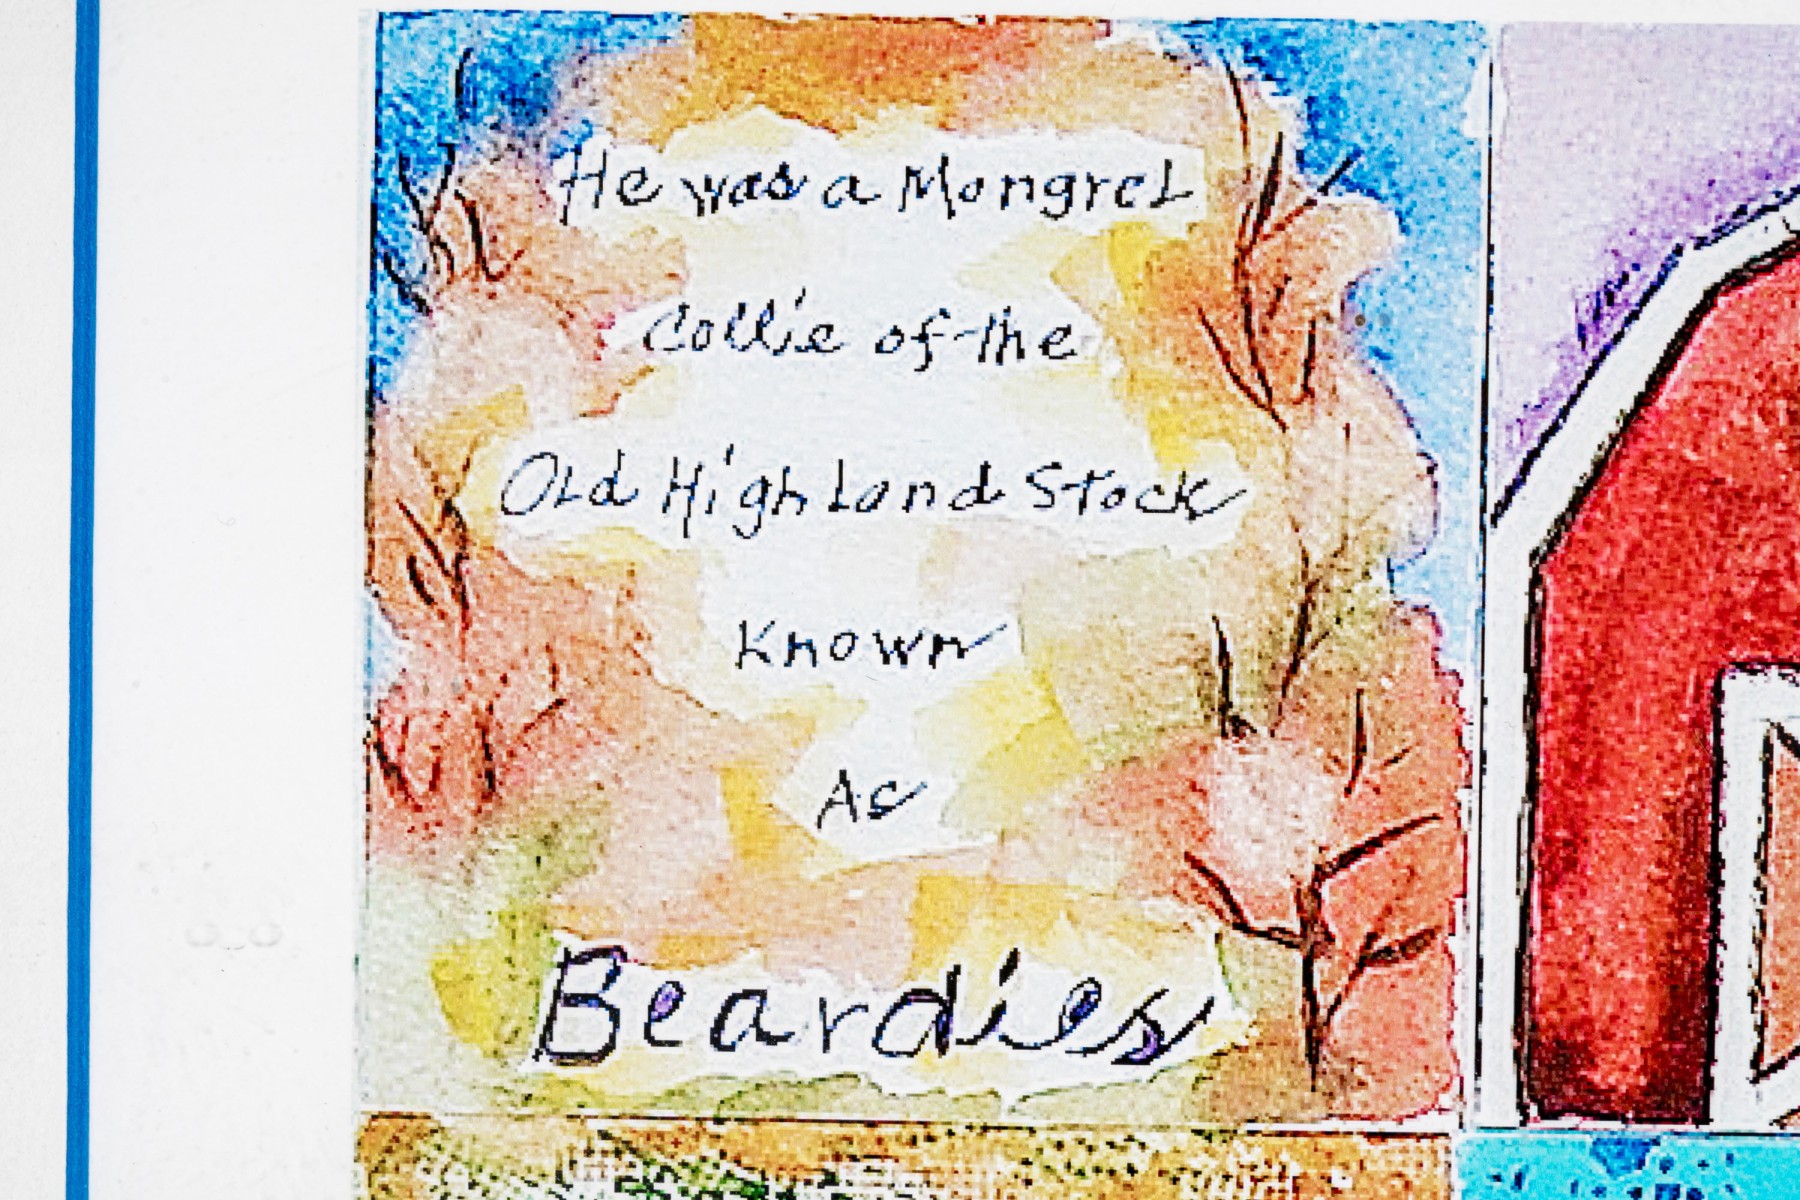 He was a Mongrel
Collie of the
Old Highland Stock
Known
As
Beardies